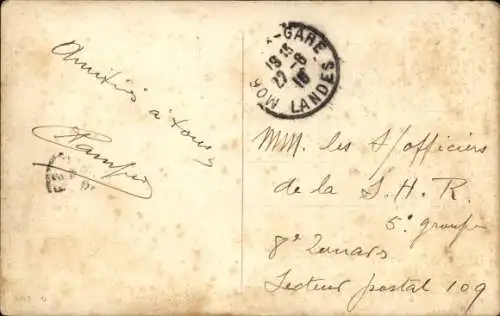 Amitiés à tous
MORCENX-GARE LANDES
19 15
22-8
16
MM. les S/officiers
de la S. H. R.
5e groupe
8e Zouaves
Secteur postal 109